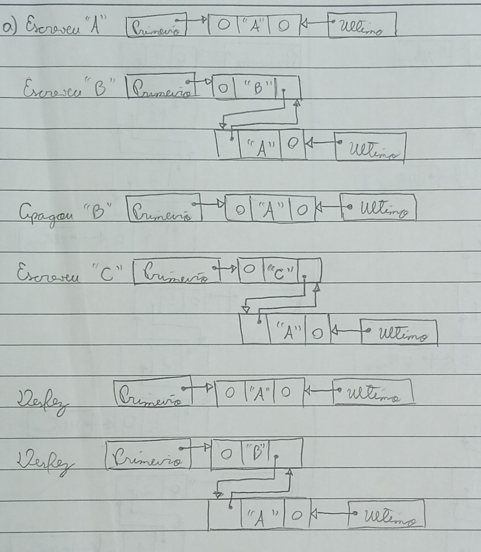 a) Escreveu "A" Primeiro 0 "A" 0 Ultimo
Escreveu "B" Primeiro 0 "B"
"A" 0 Ultimo
Apagou "B" Primeiro 0 "A" 0 Ultimo
Escreveu "C" Primeiro 0 "C"
"A" 0 Ultimo
Desfez Primeiro 0 "A" 0 Ultimo
Desfez Primeiro 0 "B"
"A" 0 Ultimo